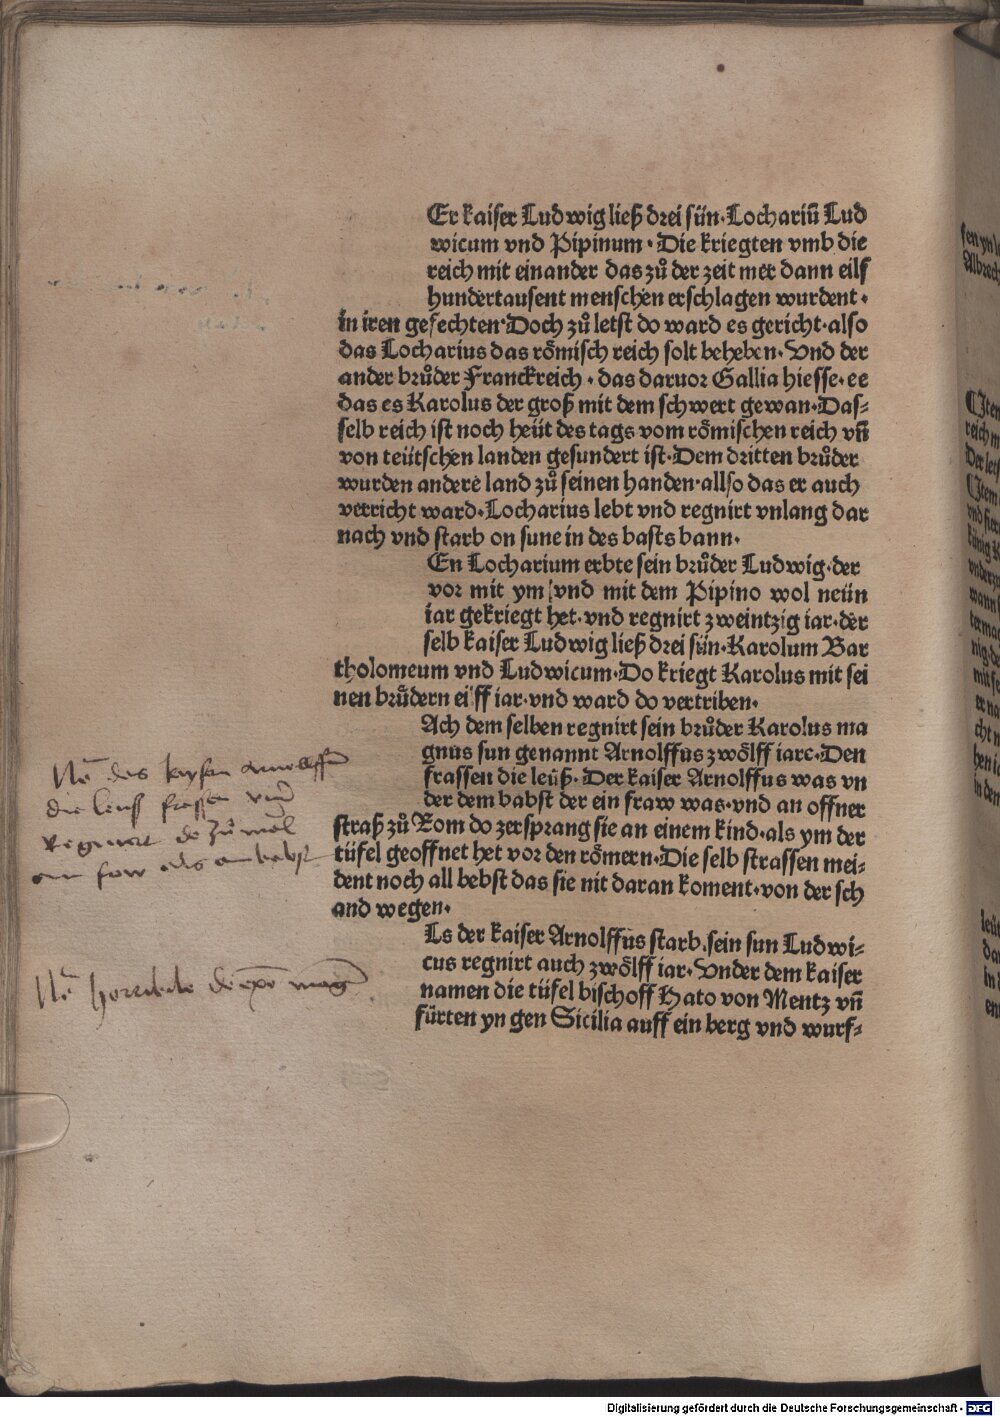 Er kaiser Ludwig ließ drei sün·Lochariū Lud
wicum vnd Pipinum·Die kriegten vmb die
reich mit einander das zů der zeit mer dann eilf
hundertausent menschen erschlagen wurdent·
in iren gefechten·Doch zů letst do ward es gericht·also
das Locharius das rȫmisch reich solt beheben·Vnd der
ander brůder Franckreich·das daruor Gallia hiesse·ee
das es Karolus der groß mit dem schwert gewan·Das⸗
selb reich ist noch heüt des tags vom rȫmischen reich vn̄
von teütschen landen gesundert ist·Dem dritten brůder
wurden andere land zů seinen handen·allso das er auch
verricht ward·Locharius lebt vnd regnirt vnlang dar
nach vnd starb on sune in des basts bann·
En Locharium erbte sein brůder Ludwig·der
vor mit ym vnd mit dem Pipino wol neün
iar gekriegt het·vnd regnirt zweintzig iar·der
selb kaiser Ludwig ließ drei sün·Karolum Bar
tholomeum vnd Ludwicum·Do kriegt Karolus mit sei
nen brůdern eilff iar·vnd ward do vertriben·
Ach dem selben regnirt sein brůder Karolus ma
gnus sun genannt Arnolffus zwölff iare·Den
frassen die leüß·Der kaiser Arnolffus was vn
der dem babst der ein fraw was·vnd an offner
straß zů Rom do zersprang sie an einem kind·als ym der
tüfel geoffnet het vor den römern·Die selb strassen mei⸗
dent noch all bebst das sie nit daran koment·von der sch
and wegen·
Ls der kaiser Arnolffus starb·sein sun Ludwi⸗
cus regnirt auch zwölff iar·Vnder dem kaiser
namen die tüfel bischoff Hato von Mentz vn̄
fürten yn gen Sicilia auff ein berg vnd wurf⸗
das keyser
die leus frassen vnd
regnirt do zů mal
ein fow als ein babst
Digitalisierung gefördert durch die Deutsche Forschungsgemeinschaft - DFG